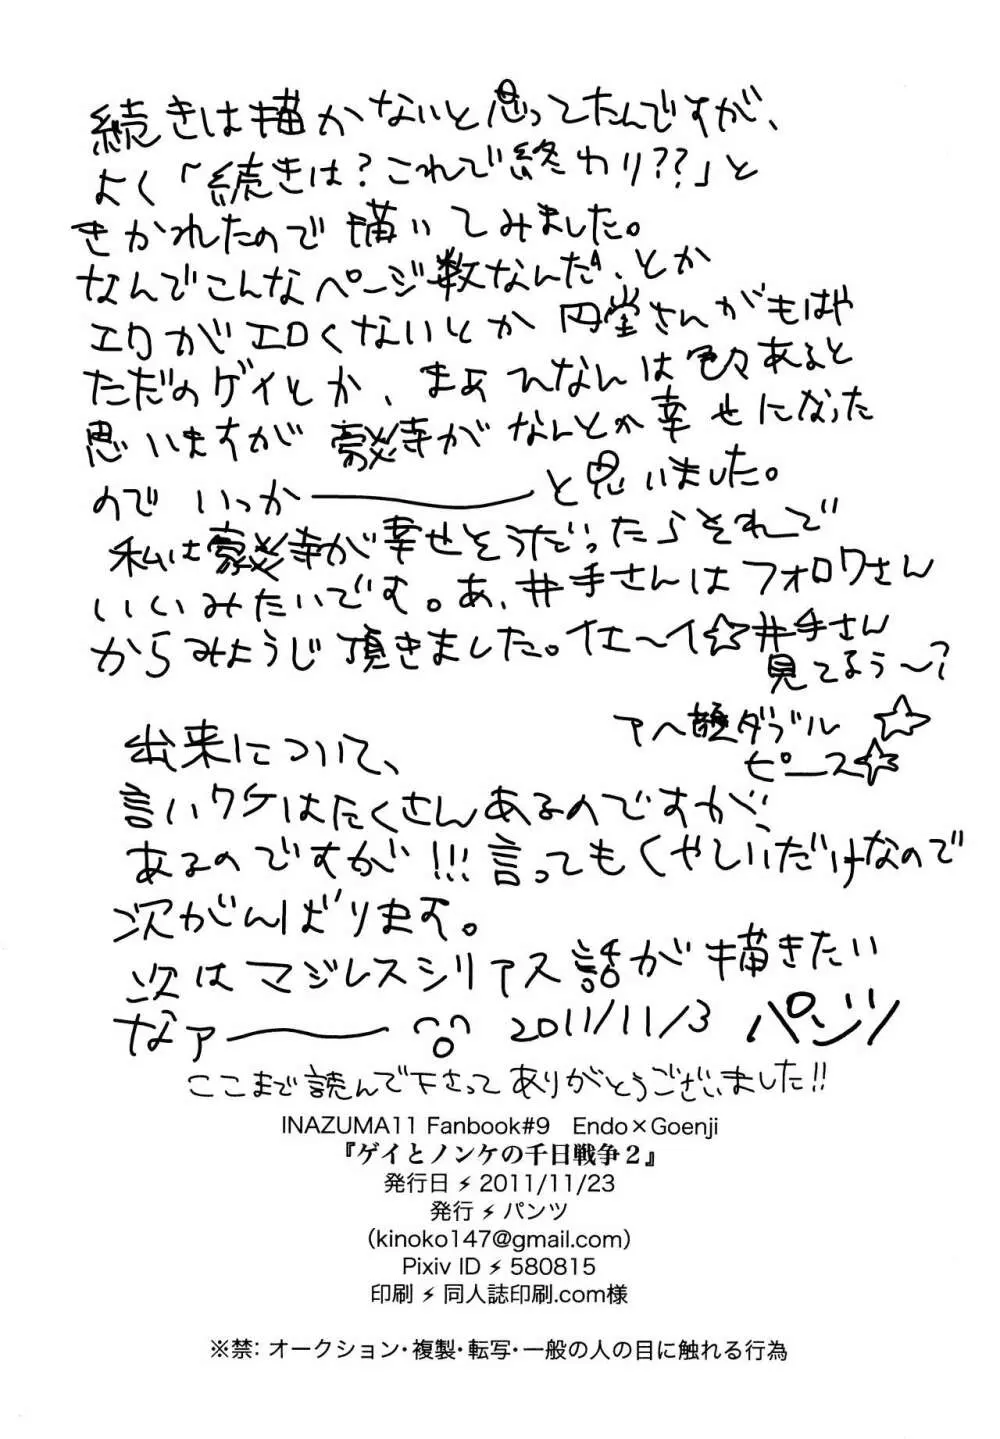 続きは描かないと思ってたんですが、
よく「続きは?これで終わり??」と
きかれたので描いてみました。
なんでこんなページ数なんだ、とか
エロがエロくないとか円堂さんがもはや
ただのゲイとか、まぁんなんは色々あると
思いますが豪炎寺がなんとか幸せになった
のでいっかーーーと思いました。
私は豪炎寺が幸せそうだったらそれで
いいみたいです。あ、井手さんはフォロワさん
からみょうじ頂きました。イェ〜イ☆井手さん
見てるぅ〜?
アヘ顔ダブル
ピース☆
出来について、
言いワケはたくさんあるのですが、
あるのですが!!!言ってもくやしいだけなので
次がんばります。
次はマジレスシリアス話が描きたい
なァーーー 2011/11/3 パンツ
ここまで読んで下さってありがとうございました!!
INAZUMA11 Fanbook#9 Endo×Goenji
『ゲイとノンケの千日戦争2』
発行日⚡2011/11/23
発行⚡パンツ
(kinoko147@gmail.com)
Pixiv ID⚡580815
印刷⚡同人誌印刷.com様
※禁: オークション・複製・転写・一般の人の目に触れる行為